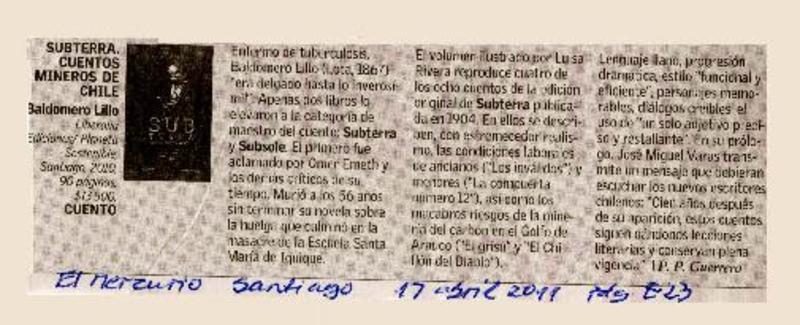 SUBTERRA.
CUENTOS
MINEROS DE
CHILE
Baldomero Lillo
Liberalia
Ediciones/ Planeta
Sostenible,
Santiago, 2010,
96 páginas,
$13.500.
CUENTO
SUB
Enfermo de tuberculosis,
Baldomero Lillo (Lota, 1867)
"era delgado hasta lo inverosí-
mil". Apenas dos libros lo
elevaron a la categoría de
maestro del cuento: Subterra
y Subsole. El primero fue
aclamado por Omer Emeth y
los demás críticos de su
tiempo. Murió a los 56 años
sin terminar su novela sobre
la huelga que culminó en la
masacre de la Escuela Santa
María de Iquique.
El volumen ilustrado por Luisa
Rivera reproduce cuatro de
los ocho cuentos de la edición
original de Subterra publica-
da en 1904. En ellos se descri-
ben, con estremecedor realis-
mo, las condiciones laborales
de ancianos ("Los inválidos") y
menores ("La compuerta
número 12"), así como los
macabros riesgos de la mine-
ría del carbón en el Golfo de
Arauco ("El grisú" y "El Chi-
flón del Diablo").
Lenguaje llano, progresión
dramática, estilo "funcional y
eficiente", personajes memo-
rables, diálogos creíbles, el
uso de "un solo adjetivo preci-
so y restallante". En su prólo-
go, José Miguel Varas trans-
mite un mensaje que debieran
escuchar los nuevos escritores
chilenos: "Cien años después
de su aparición, estos cuentos
siguen dándonos lecciones
literarias y conservan plena
vigencia". P. P. Guerrero
El Mercurio Santiago 17 abril 2011 Pág E23